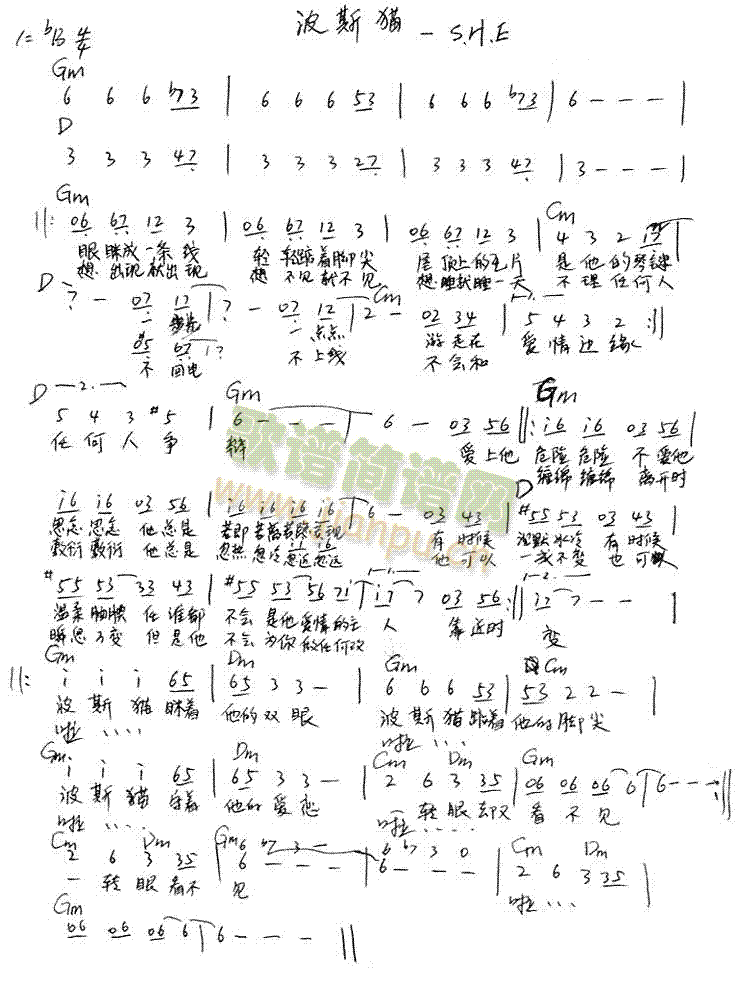 波斯猫 - S.H.E
1=ᵇB 4/4
Gm
6 6 6 ᵇ7 3 | 6 6 6 5 3 | 6 6 6 ᵇ7 3 | 6 - - - |
D
3 3 3 4 7 | 3 3 3 2 7 | 3 3 3 4 7 | 3 - - - |
Gm Cm
||: 06 67 12 3 | 06 67 12 3 | 06 67 12 3 | 4 3 2 17 |
眼眯成一条线 轻轻踮着脚尖 屋顶上的瓦片 是他的琴键
想出现就出现 想不见就不见 想睡就睡一天 不理任何人
D Cm 1.
7 - 07 17 | 7 - 07 12 | 2 - 02 34 | 5 4 3 2 :||
一步步 一点点 游走在 爱情边缘
05 07 | 7
不回电 不上线 不会和
D 2. Gm Gm
5 4 3 #5 | 6 - - - | 6 - 03 56 ||: i6 i6 03 56 |
任何人争 辩 爱上他 危险危险 不爱他
缠绵缠绵 离开时
D
i6 i6 03 56 | i6 i6 i6 i6 | 6 - 03 43 | #55 53 03 43 |
思念思念 他总是 若即若离若隐若现 有时候 沉默冰冷 有时候
敷衍敷衍 他总是 忽热忽冷忽近忽远 他可以 一成不变 也可以
#55 53 33 43 | #55 53 56 7i | i7 7 03 56 :|| i7 7 - - |
温柔腼腆 任谁都 不会是他爱情的主 人 靠近时 变
瞬息万变 但是他 不会为你做任何改
Gm Dm Gm Cm
||: i i i 65 | 65 3 3 - | 6 6 6 53 | 53 2 2 - |
波斯猫眯着 他的双眼 波斯猫踮着 他的脚尖
啦.... 啦....
Gm Dm Cm Dm Gm
i i i 65 | 65 3 3 - | 2 6 3 35 | 06 06 06 6 | 6 - - - :||
波斯猫守着 他的爱恋 一转眼却又 看不见
啦.... 啦....
Cm Dm Gm 6 ᵇ7 3 - 6 ᵇ7 3 0 Cm Dm
2 6 3 35 | 6 - - - | 6 - - - | 2 6 3 35 |
一转眼看不 见 啦....
Gm
06 06 06 6 | 6 - - - ||
歌谱简谱网
www.jianpu.cn